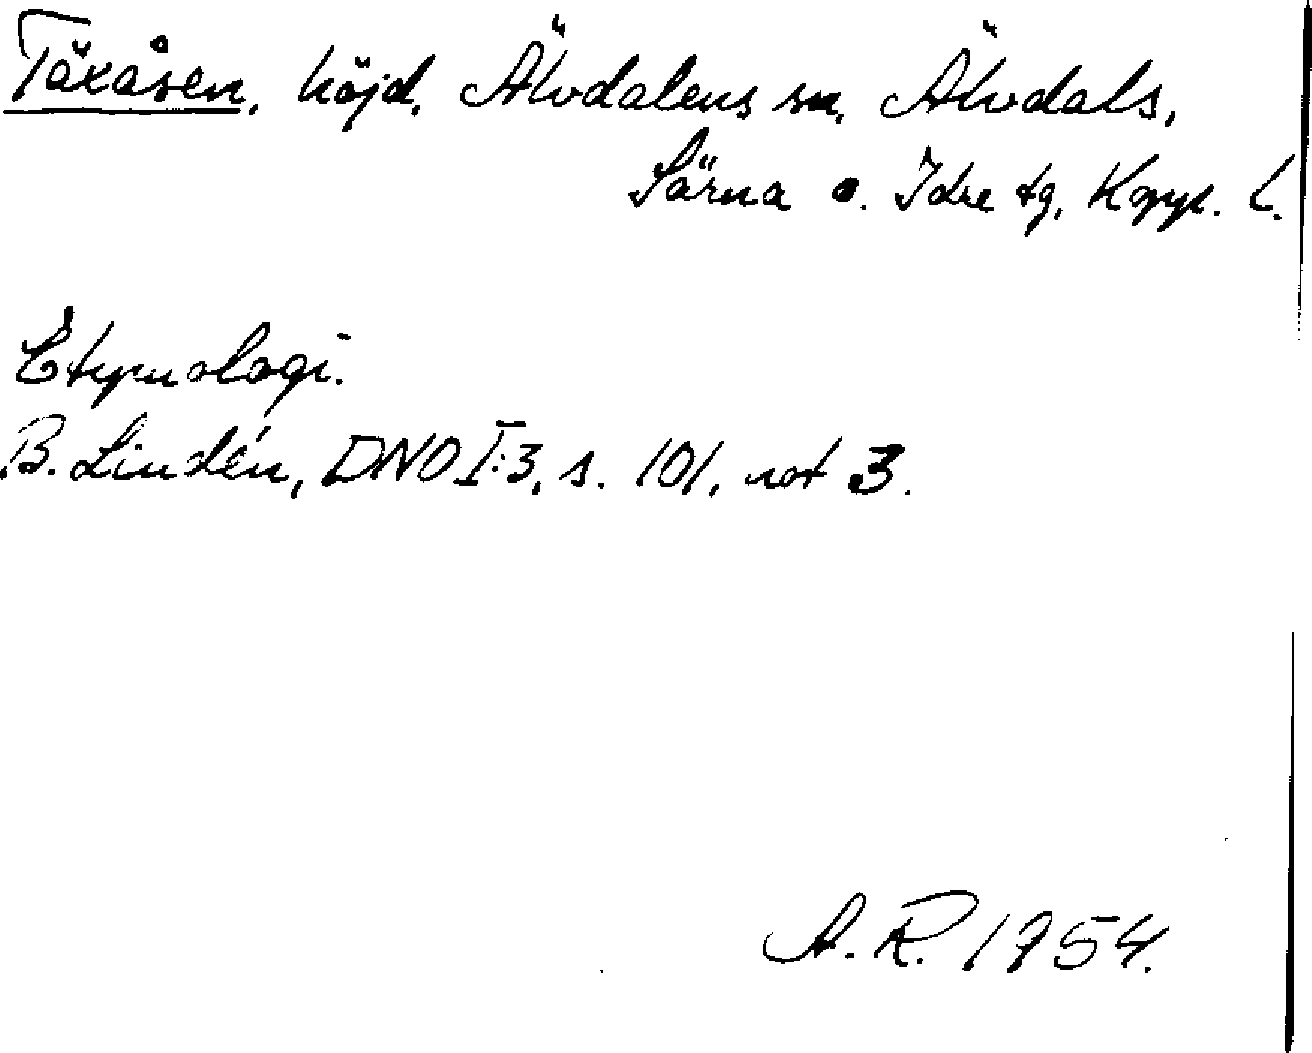 Täxåsen, höjd, Älvdalens sn, Älvdals,
Särna o. Idre tg, Kopp. L.
Etymologi.
B. Lindén, DNO I:3, s. 101, not 3.
A. R. 1954.